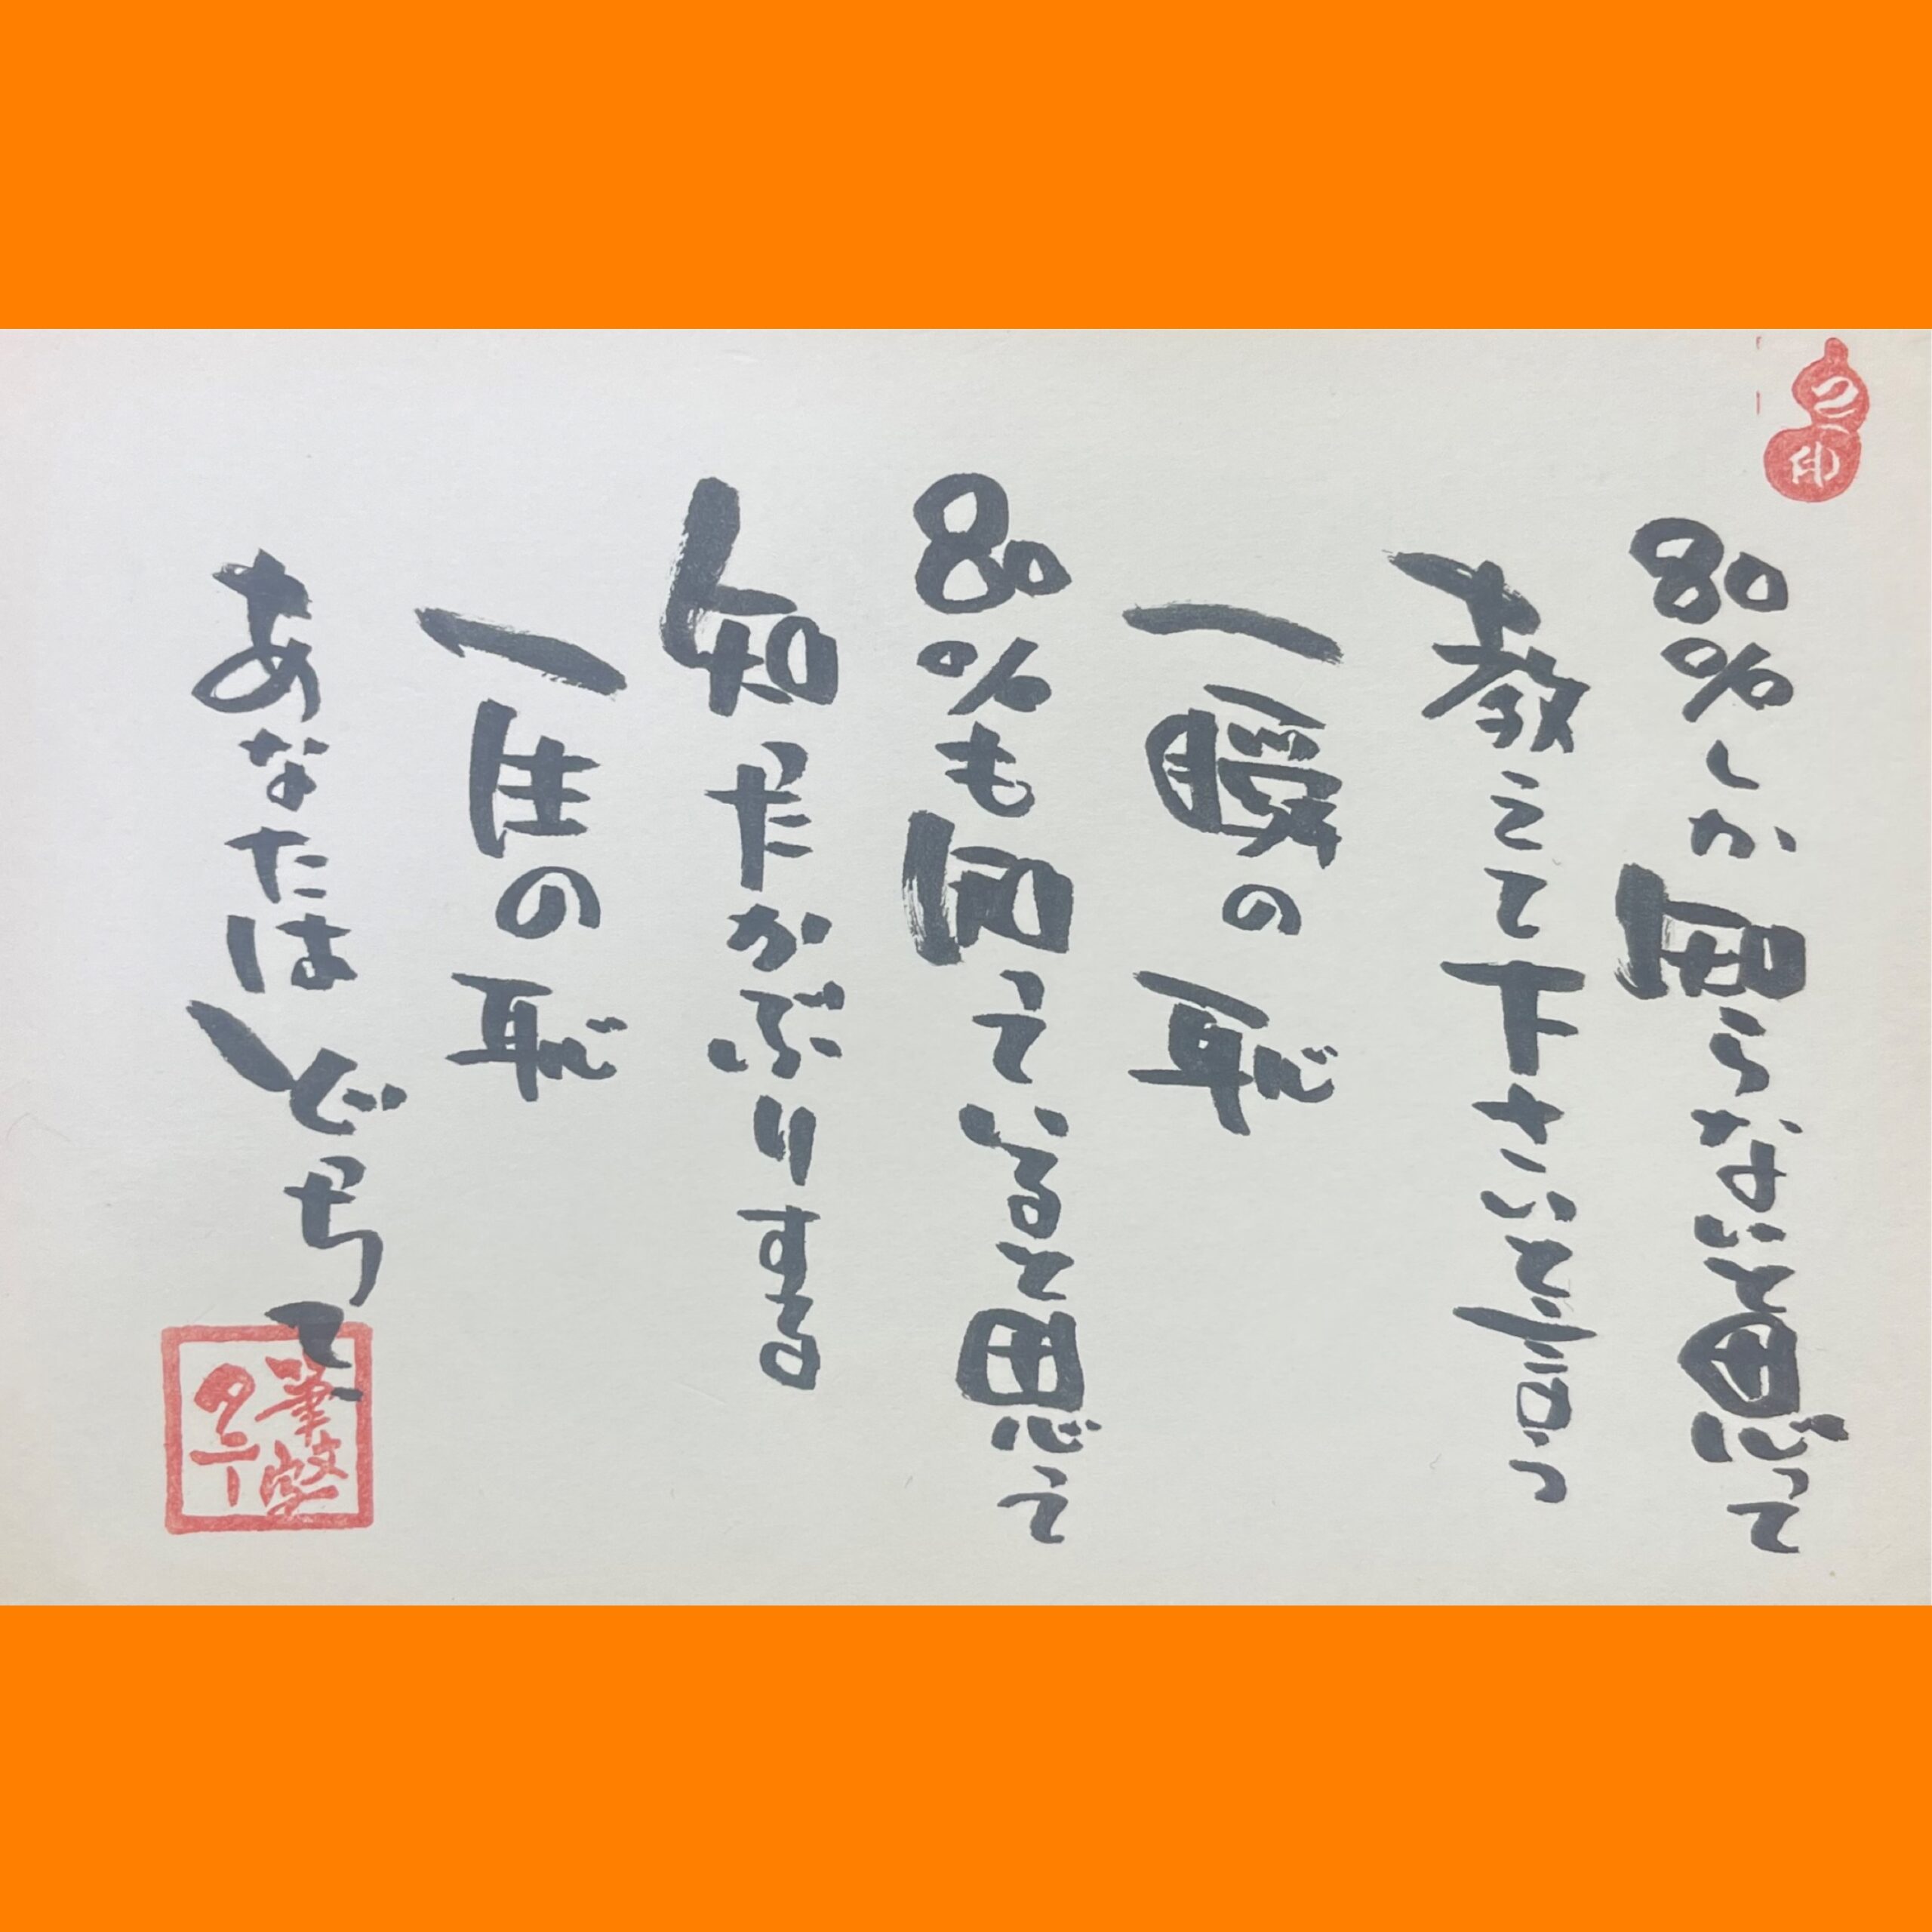 80%しか知らないと思って
教えて下さいと言う
一瞬の恥
80%も知っていると思って
知ったかぶりする
一生の恥
あなたはどちって
筆文字